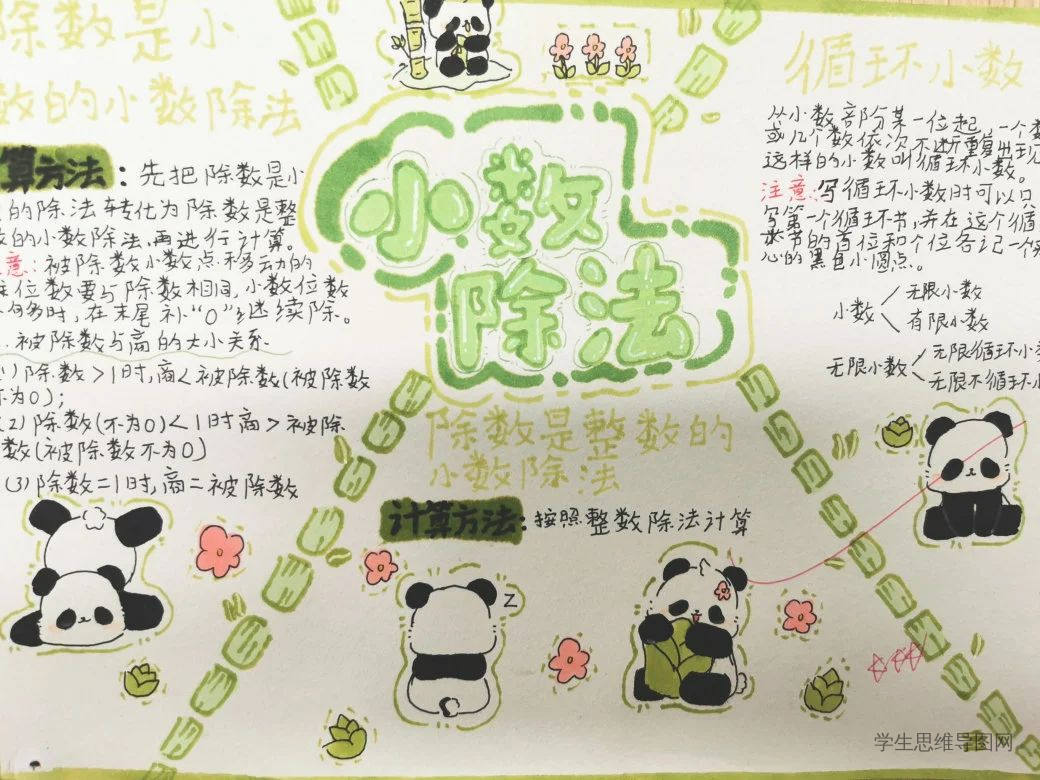 除数是小
数的小数除法
算方法：先把除数是小
的除法转化为除数是整
的小数除法,再进行计算。
意:被除数小数点移动的
位数要与除数相同,小数位数
时,在末尾补“0”继续除。
被除数与高的大小关系
(1)除数>1时,高<被除数(被除数
不为0);
(2)除数(不为0)<1时高>被除
数(被除数不为0)
(3)除数=1时,高=被除数
小数
除法
除数是整数的
小数除法
计算方法:按照整数除法计算
Z
循环小数
从小数部分某一位起,一个数
或几个数依次不断重复出现
这样的小数叫循环小数。
注意:写循环小数时可以只
写第一个循环节,并在这个循
节的首位和个位各记一个
心的黑色小圆点。
小数
无限小数
有限小数
无限小数
无限循环小
无限不循环小
学生思维导图网